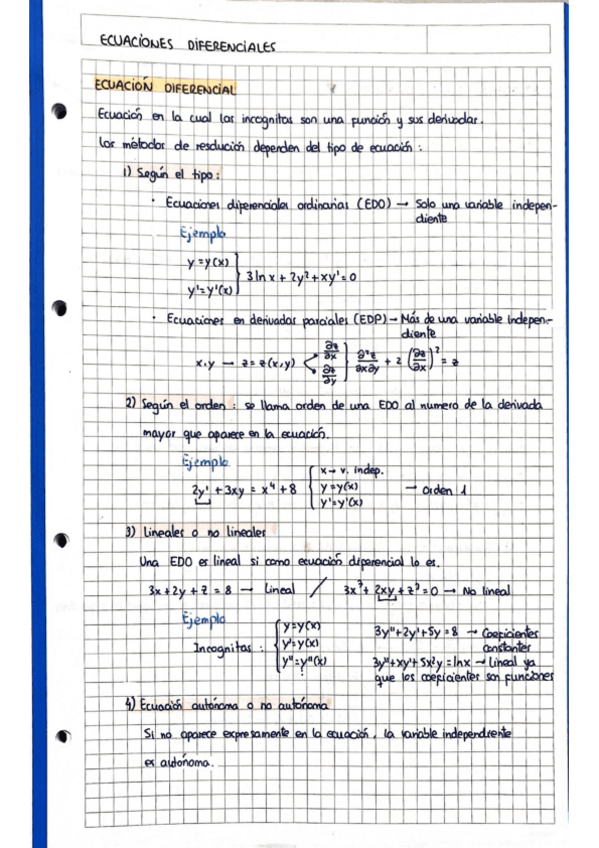 ECUACIONES DIFERENCIALES
ECUACIÓN DIFERENCIAL
Ecuación en la cual las incognitas son una función y sus derivadas.
Los métodos de resolución dependen del tipo de ecuación:
1) Según el tipo:
· Ecuaciones diferenciales ordinarias (EDO) → Solo una variable indepen-
diente
Ejemplo
y = y(x)
y' = y'(x) } 3 ln x + 2y² + xy' = 0
· Ecuaciones en derivadas parciales (EDP) → Más de una variable indepen-
diente
x,y → z = z(x,y) < ∂z/∂x ∂z/∂y } ∂²z/∂x∂y + 2 (∂z/∂x)² = z
2) Según el orden: se llama orden de una EDO al numero de la derivada
mayor que aparece en la ecuación.
Ejemplo
2y' + 3xy = x⁴ + 8 { x → v. indep.
y = y(x) → orden 1
y' = y'(x)
3) Lineales o no lineales
Una EDO es lineal si como ecuación diferencial lo es.
3x + 2y + z = 8 → Lineal / 3x³ + 2xy + z³ = 0 → No lineal
Ejemplo
Incognitas: { y = y(x)
y' = y(x)
y'' = y''(x)
3y'' + 2y' + 5y = 8 → Coeficientes
constantes
3y'' + xy' + 5x²y = lnx → Lineal ya
que los coeficientes son funciones
4) Ecuación autónoma o no autónoma
Si no aparece expresamente en la ecuación, la variable independiente
es autónoma.